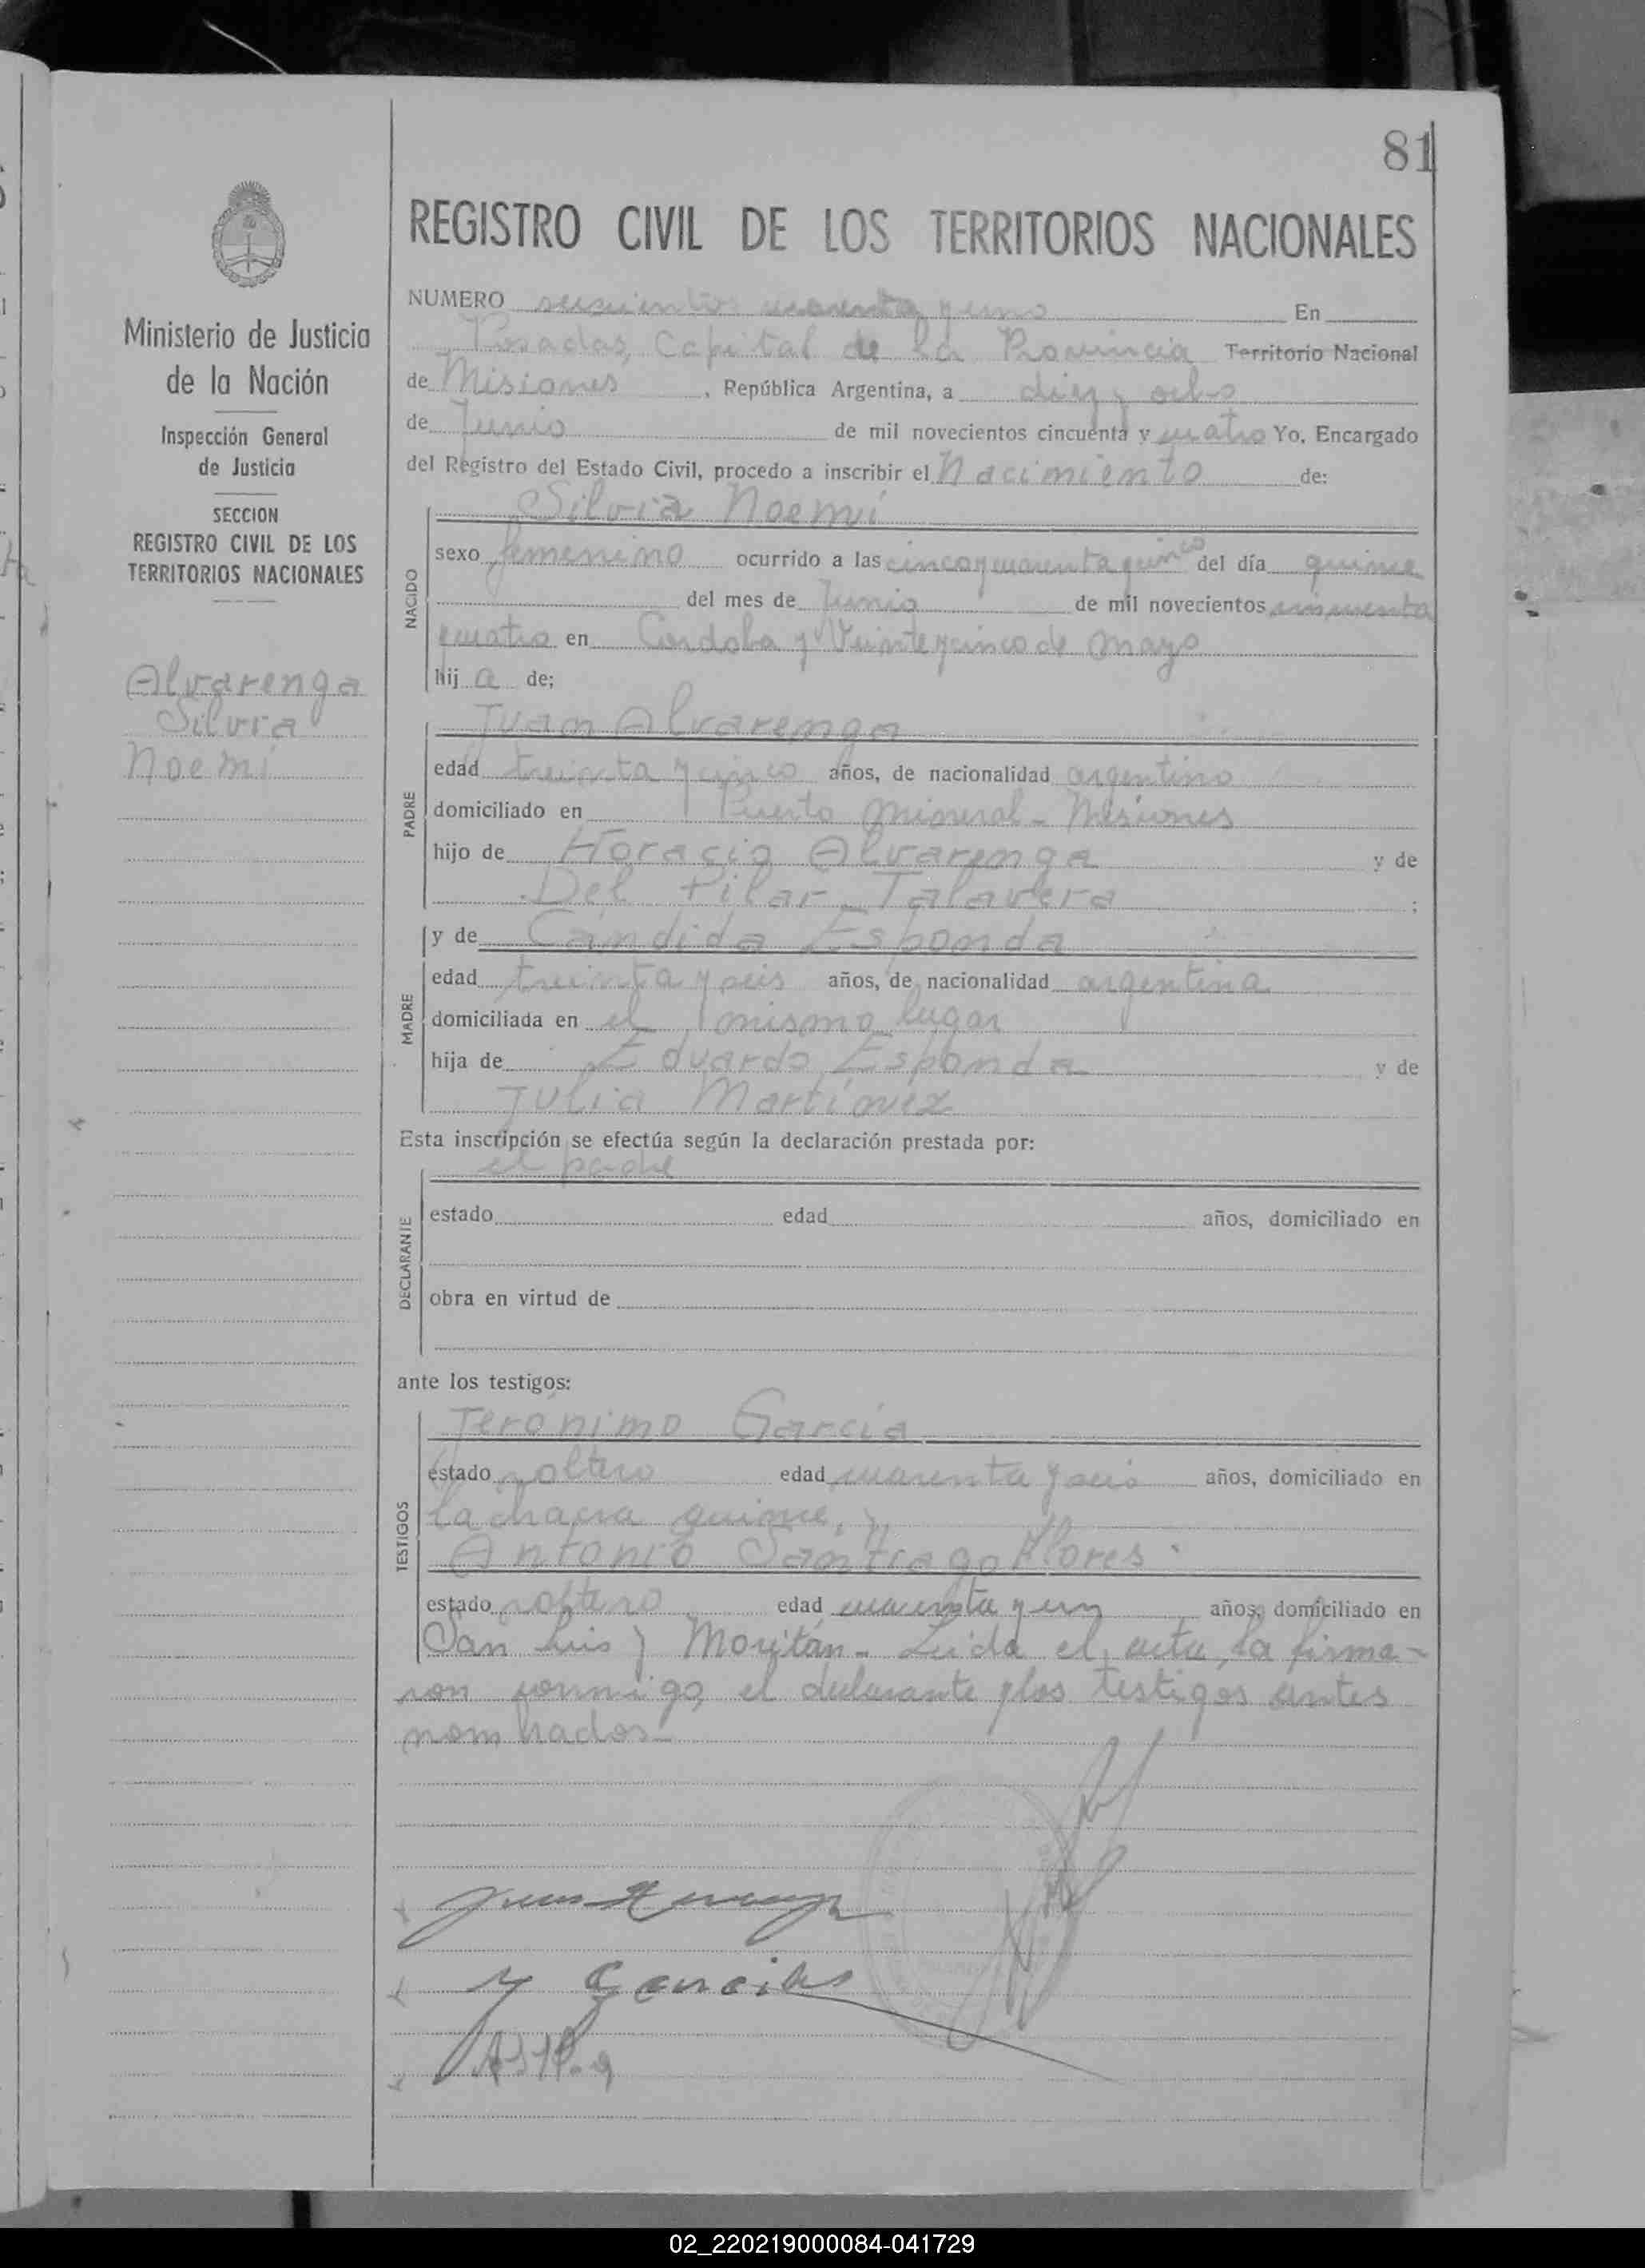 81
REGISTRO CIVIL DE LOS TERRITORIOS NACIONALES
Ministerio de Justicia
de la Nación
Inspección General
de Justicia
SECCION
REGISTRO CIVIL DE LOS
TERRITORIOS NACIONALES
Alvarenga
Silvia
Noemi
NUMERO seiscientos cuarenta y uno En
Posadas, Capital de la Provincia Territorio Nacional
de Misiones, República Argentina, a diez y ocho
de Junio de mil novecientos cincuenta y cuatro Yo, Encargado
del Registro del Estado Civil, procedo a inscribir el Nacimiento de:
NACIDO
Silvia Noemi
sexo femenino ocurrido a las cinco y cuarenta y cinco del día quince
del mes de Junio de mil novecientos cincuenta
cuatro en Cordoba y Veinte y cinco de Mayo
hij a de;
PADRE
Juan Alvarenga
edad treinta y cinco años, de nacionalidad argentino
domiciliado en Puerto Mineral - Misiones
hijo de Horacio Alvarenga y de
Del Pilar Talavera ;
MADRE
y de Cándida Esponda
edad treinta y seis años, de nacionalidad argentina
domiciliada en el mismo lugar
hija de Eduardo Esponda y de
Julia Martínez
Esta inscripción se efectúa según la declaración prestada por:
DECLARANTE
el padre
estado edad años, domiciliado en
obra en virtud de
ante los testigos:
TESTIGOS
Jerónimo García
estado soltero edad cuarenta y seis años, domiciliado en
la chacra quince, y
Antonio Santiago Flores
estado soltero edad cuarenta y un años, domiciliado en
San Luis y Moritán - Leida el acta, la firma-
ron conmigo, el declarante y los testigos antes
nombrados.
02_220219000084-041729